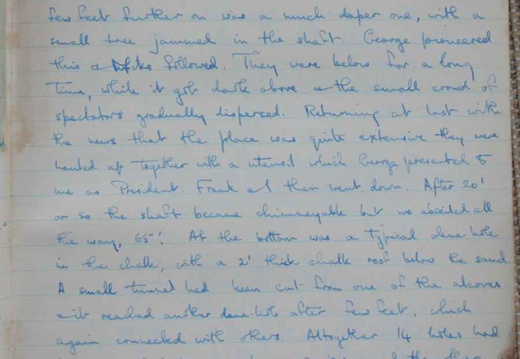 few feet further on was a much deeper one, with a
small tree jammed in the shaft. George pioneered
this & Mike followed. They were below for a long
time, while it got dark above & the small crowd of
spectators gradually dispersed. Returning at last with
the news that the place was quite extensive they were
hauled up together with a utensil which George presented to
me as President. Frank & I then went down. After 20'
or so the shaft became chimneyable but we abseiled all
the way, 65'! At the bottom was a typical dene hole
in the chalk, with a 2' thick chalk roof below the sand.
A small tunnel had been cut from one of the alcoves
& it reached another dene hole after few feet, which
again connected with others. Altogether 14 holes had